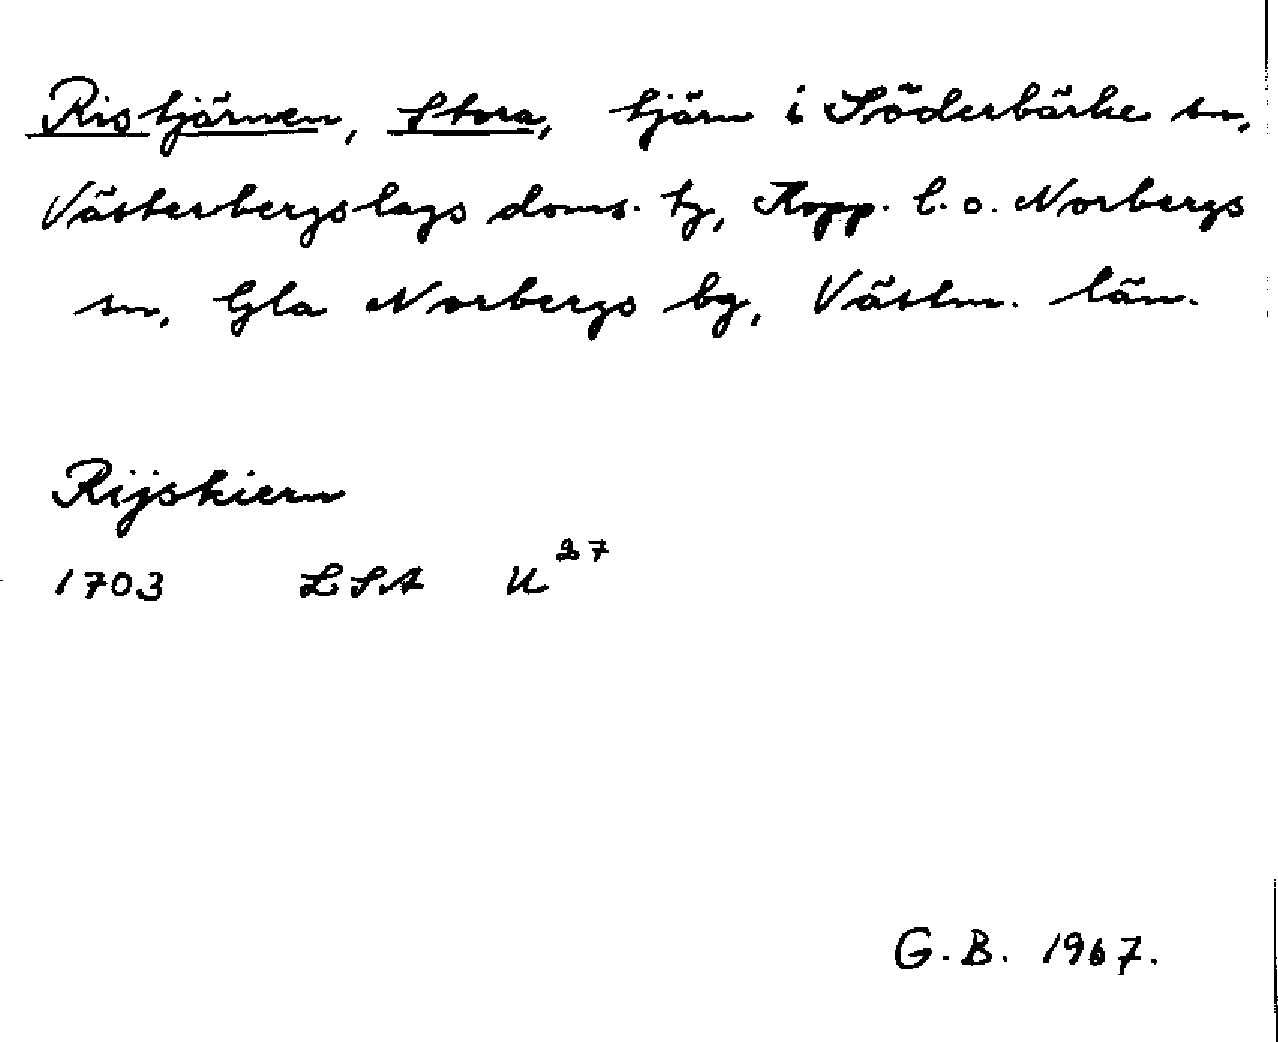 Ristjärnen, Stora, tjärn i Söderbärke sn,
Västerbergslags doms. tg, Kopp. l. o. Norbergs
sn, Gla Norbergs bg, Västm. län.
Rijskiern
1703 LSA U27
G.B. 1967.